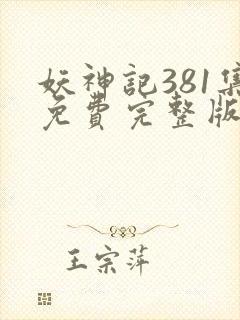 妖神記381集
免費完整版
王宗萍